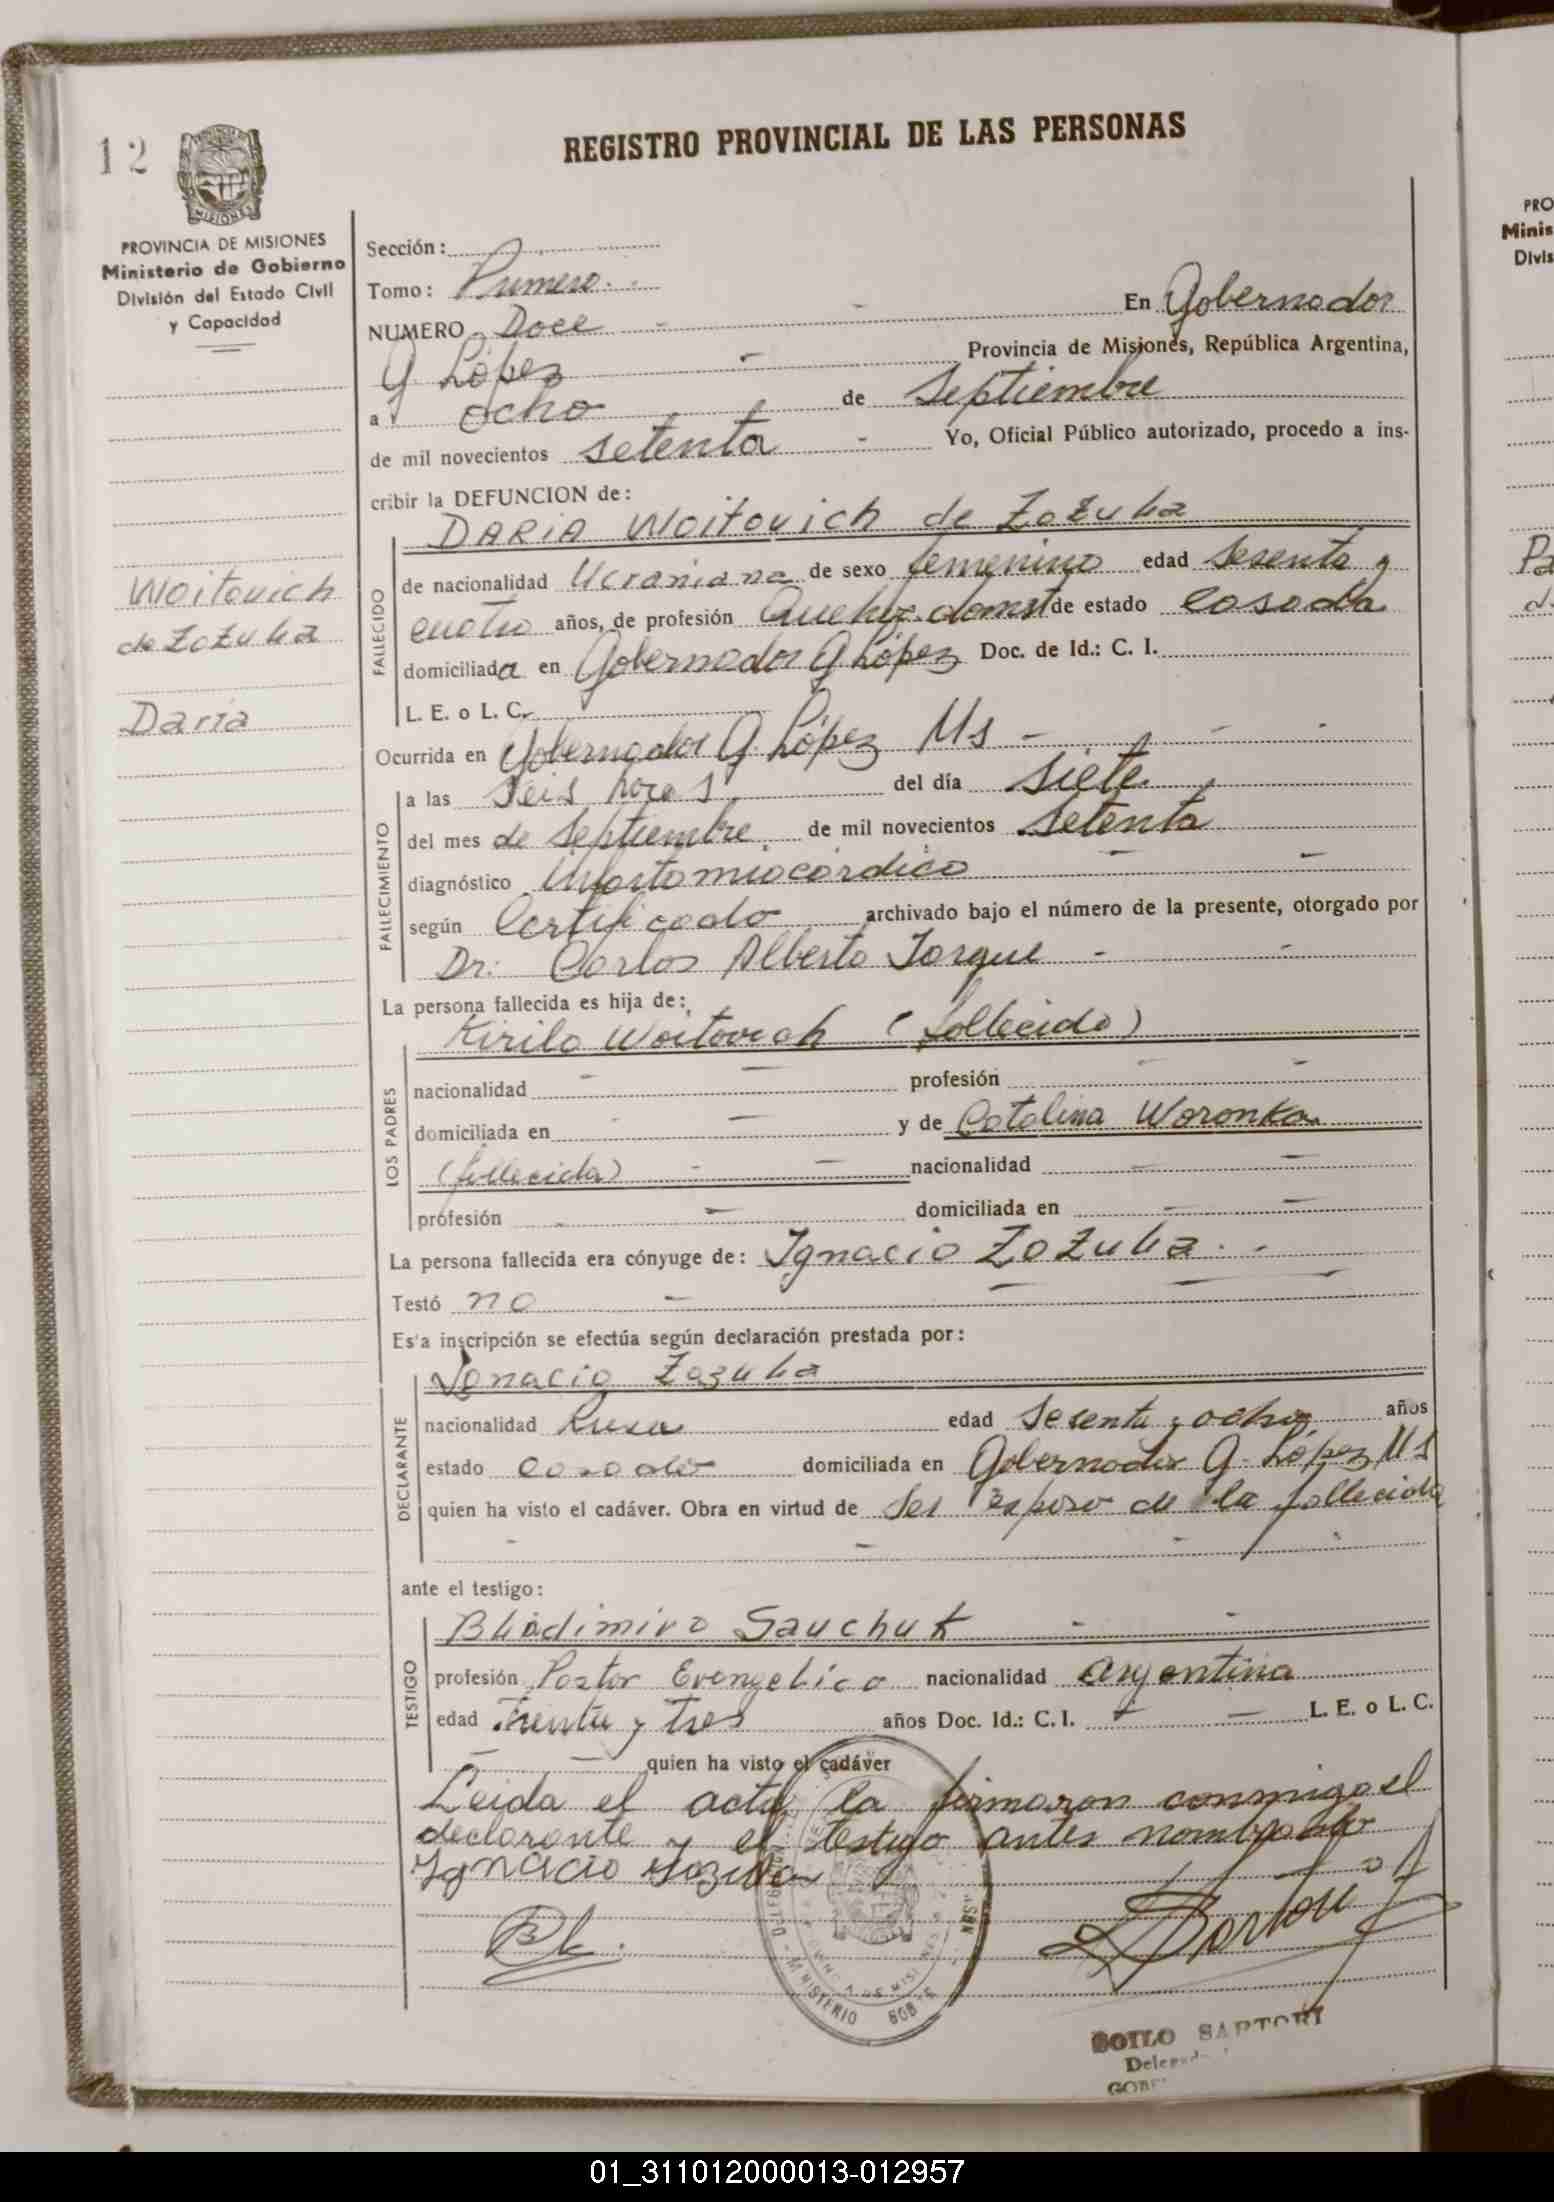 12
REGISTRO PROVINCIAL DE LAS PERSONAS
MISIONES
PROVINCIA DE MISIONES
Ministerio de Gobierno
División del Estado Civil
y Capacidad
Sección:
Tomo: Primero.
NUMERO Doce
En Gobernador
G. López - Provincia de Misiones, República Argentina,
a ocho de Septiembre
de mil novecientos setenta - Yo, Oficial Público autorizado, procedo a ins-
cribir la DEFUNCION de:
DARIA Woitovich de Zozulia
Woitovich
de Zozulia
Daria
FALLECIDO
de nacionalidad Ucraniana de sexo femenino edad sesenta y
cuatro años, de profesión Quehc. domst de estado casada
domiciliada en Gobernador G López Doc. de Id.: C. I.
L. E. o L. C.
Ocurrida en Gobernador G. López Ms -
FALLECIMIENTO
a las Seis horas del día Siete
del mes de Septiembre de mil novecientos Setenta
diagnóstico Infarto miocárdico
según Certificado archivado bajo el número de la presente, otorgado por
Dr. Carlos Alberto Jorque -
La persona fallecida es hija de:
Kirilo Woitovich (fallecido)
LOS PADRES
nacionalidad - profesión -
domiciliada en - y de Catalina Woronka
(fallecida) - nacionalidad -
profesión - domiciliada en -
La persona fallecida era cónyuge de: Ignacio Zozulia. -
Testó no -
Esta inscripción se efectúa según declaración prestada por:
Ignacio Zozulia
DECLARANTE
nacionalidad Rusa edad Sesenta y ocho años
estado casado domiciliada en Gobernador G. López Ms
quien ha visto el cadáver. Obra en virtud de Ser esposo de la fallecida
ante el testigo:
TESTIGO
Bladimiro Sauchuk -
profesión Pastor Evangelico nacionalidad argentina
edad Treinta y tres años Doc. Id.: C. I. - L. E. o L. C.
- quien ha visto el cadáver
Leida el acta, la firmaron conmigo el
declarante y el testigo antes nombrado
Ignacio
MINISTERIO
SARTORI
01_311012000013-012957